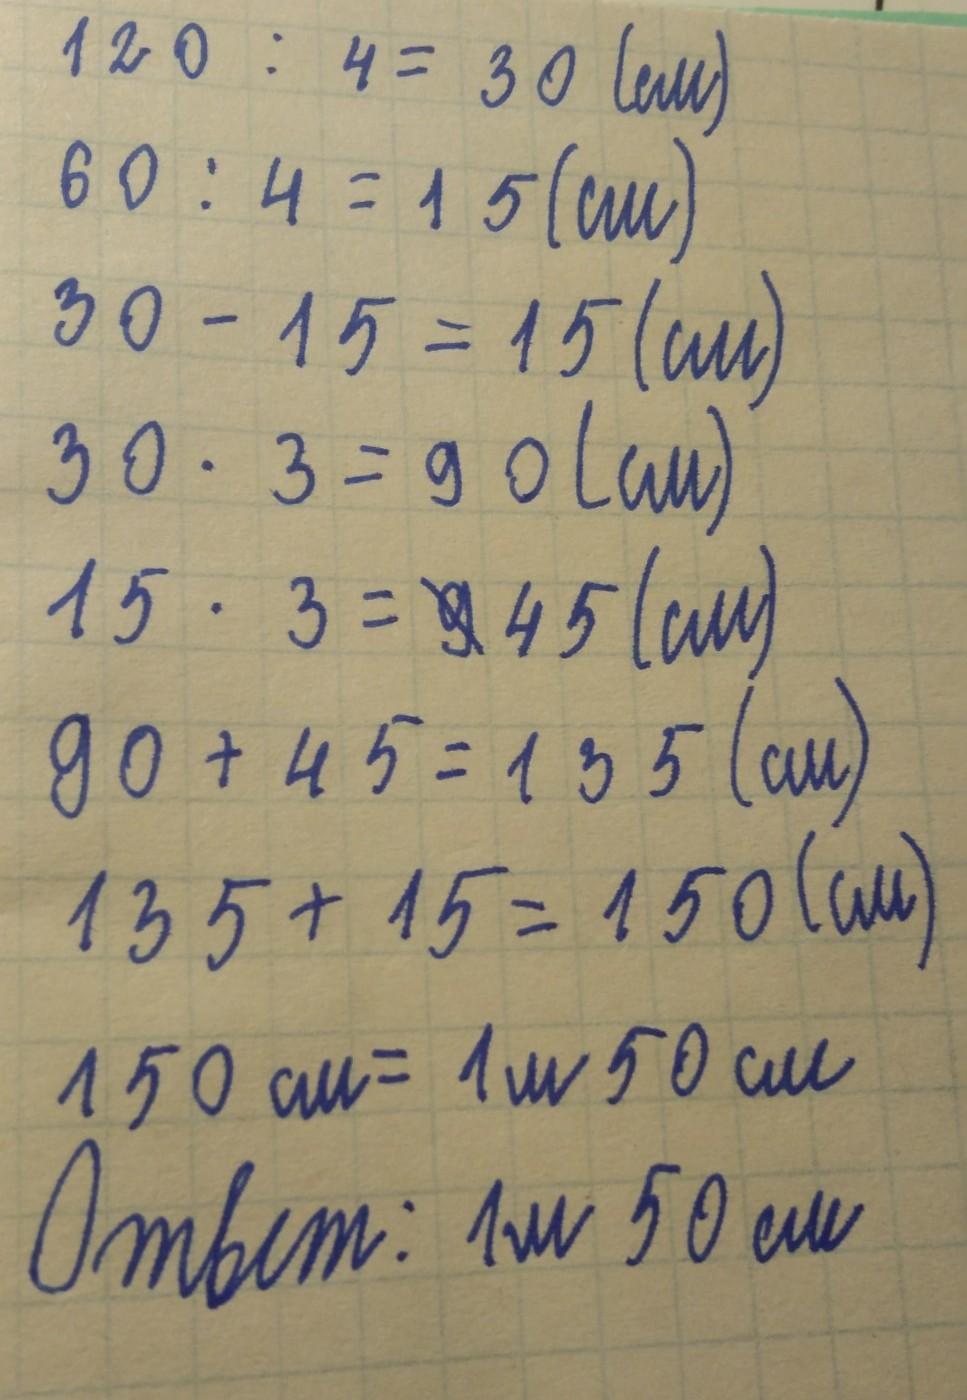 120 : 4 = 30 (см)
60 : 4 = 15 (см)
30 - 15 = 15 (см)
30 · 3 = 90 (см)
15 · 3 = 45 (см)
90 + 45 = 135 (см)
135 + 15 = 150 (см)
150 см = 1м 50 см
Ответ: 1м 50 см